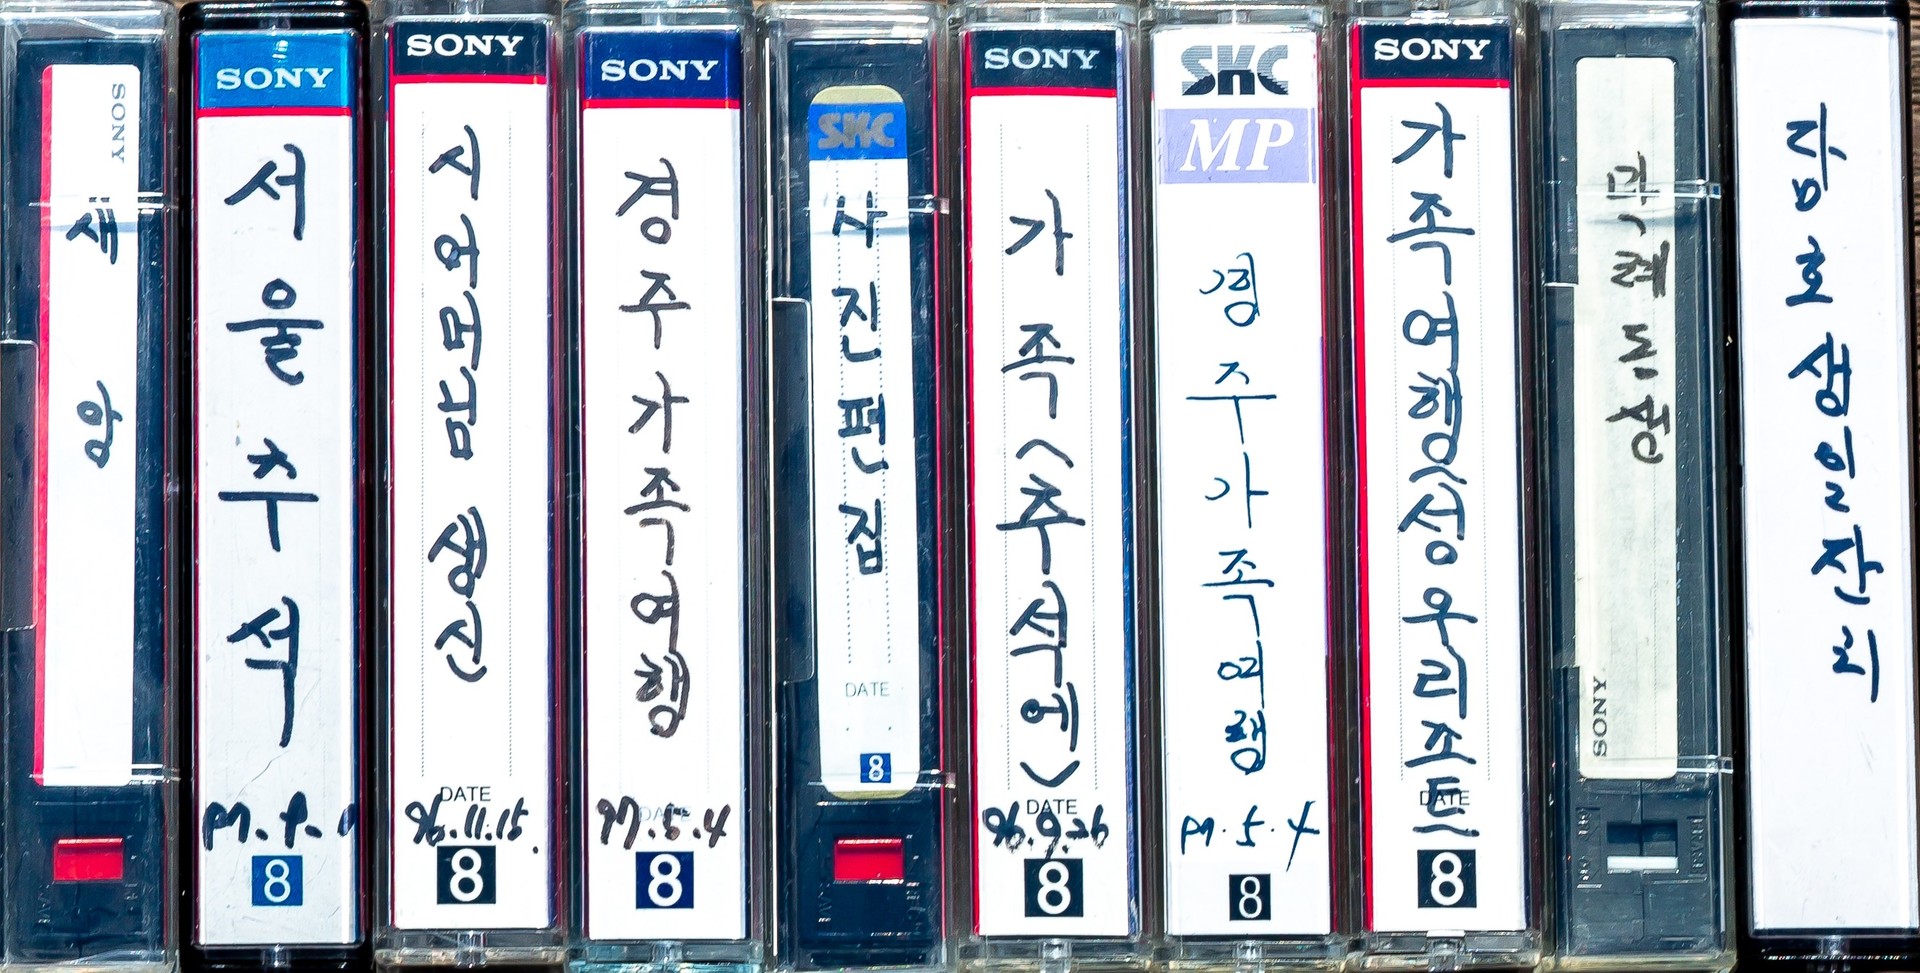 SONY
새 앙
SONY
서울추석
8
SONY
시와 모밤 생신
DATE
96.11.15.
8
SONY
경주가족여행
DATE
97.5.4
8
SKC
사진편집
DATE
8
SONY
가족<추석에>
DATE
96.9.26
8
SKC
MP
경주가족여행
97.5.4
8
SONY
가족여행(성우리조트)
DATE
8
SONY
생일잔치